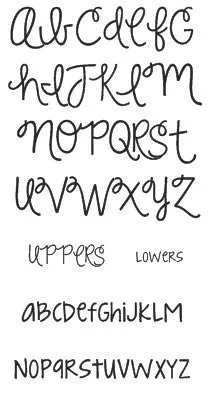 abCdefG
hIJKlM
NOPQRSt
UVWXYZ
UPPERS LOWERS
aBCDefGhiJKLM
NOPqRSTUVWXYZ